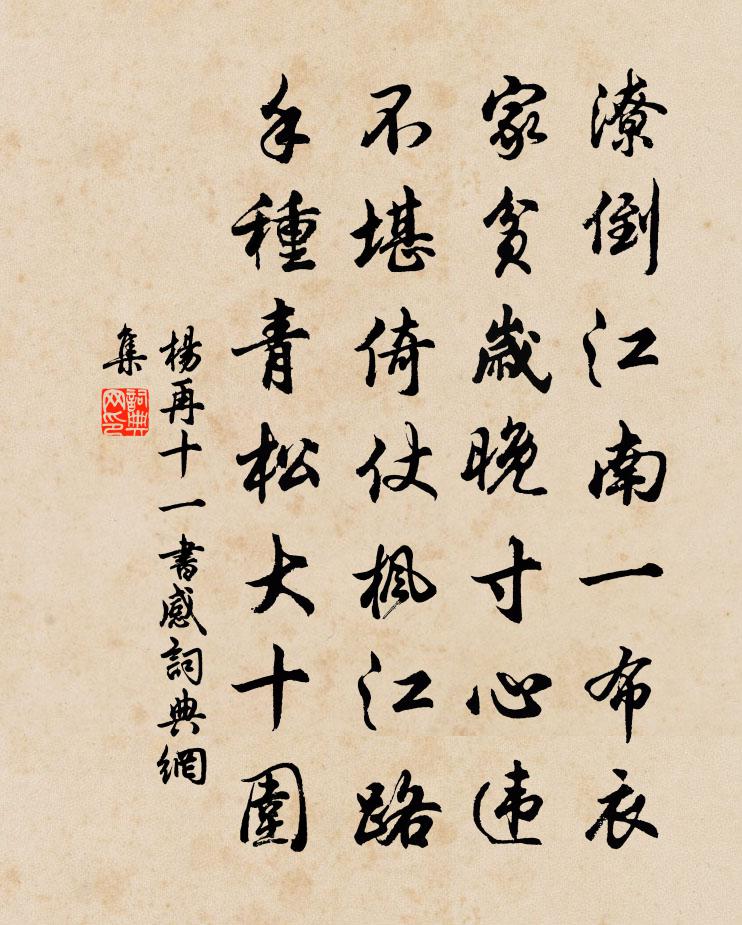 潦倒江南一布衣
家贫歲晚寸心违
不堪倚仗枫江路
手種青松大十圍
楊再十一書感詞典網
集
詞典
网印